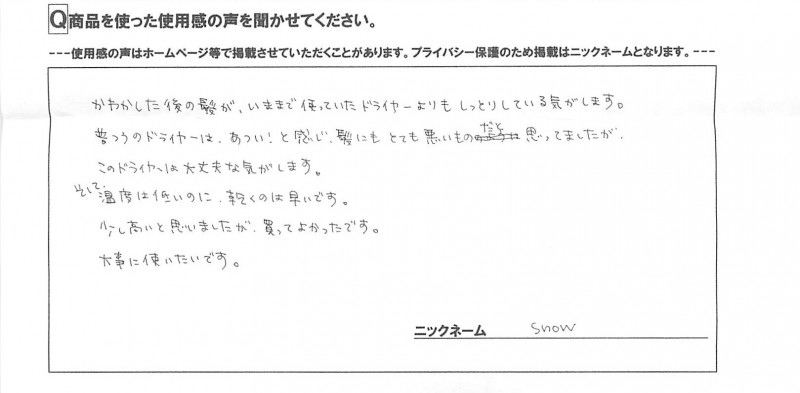 Q商品を使った使用感の声を聞かせてください。
---使用感の声はホームページ等で掲載させていただくことがあります。プライバシー保護のため掲載はニックネームとなります。---
かわかした後の髪が、いままで使っていたドライヤーよりもしっとりしている気がします。
普つうのドライヤーは、あつい!と感じ、髪にもとても悪いものだと思ってましたが、
このドライヤーは大丈夫な気がします。
そして、温度は低いのに、乾くのは早いです。
少し高いと思いましたが、買ってよかったです。
大事に使いたいです。
ニックネーム snow